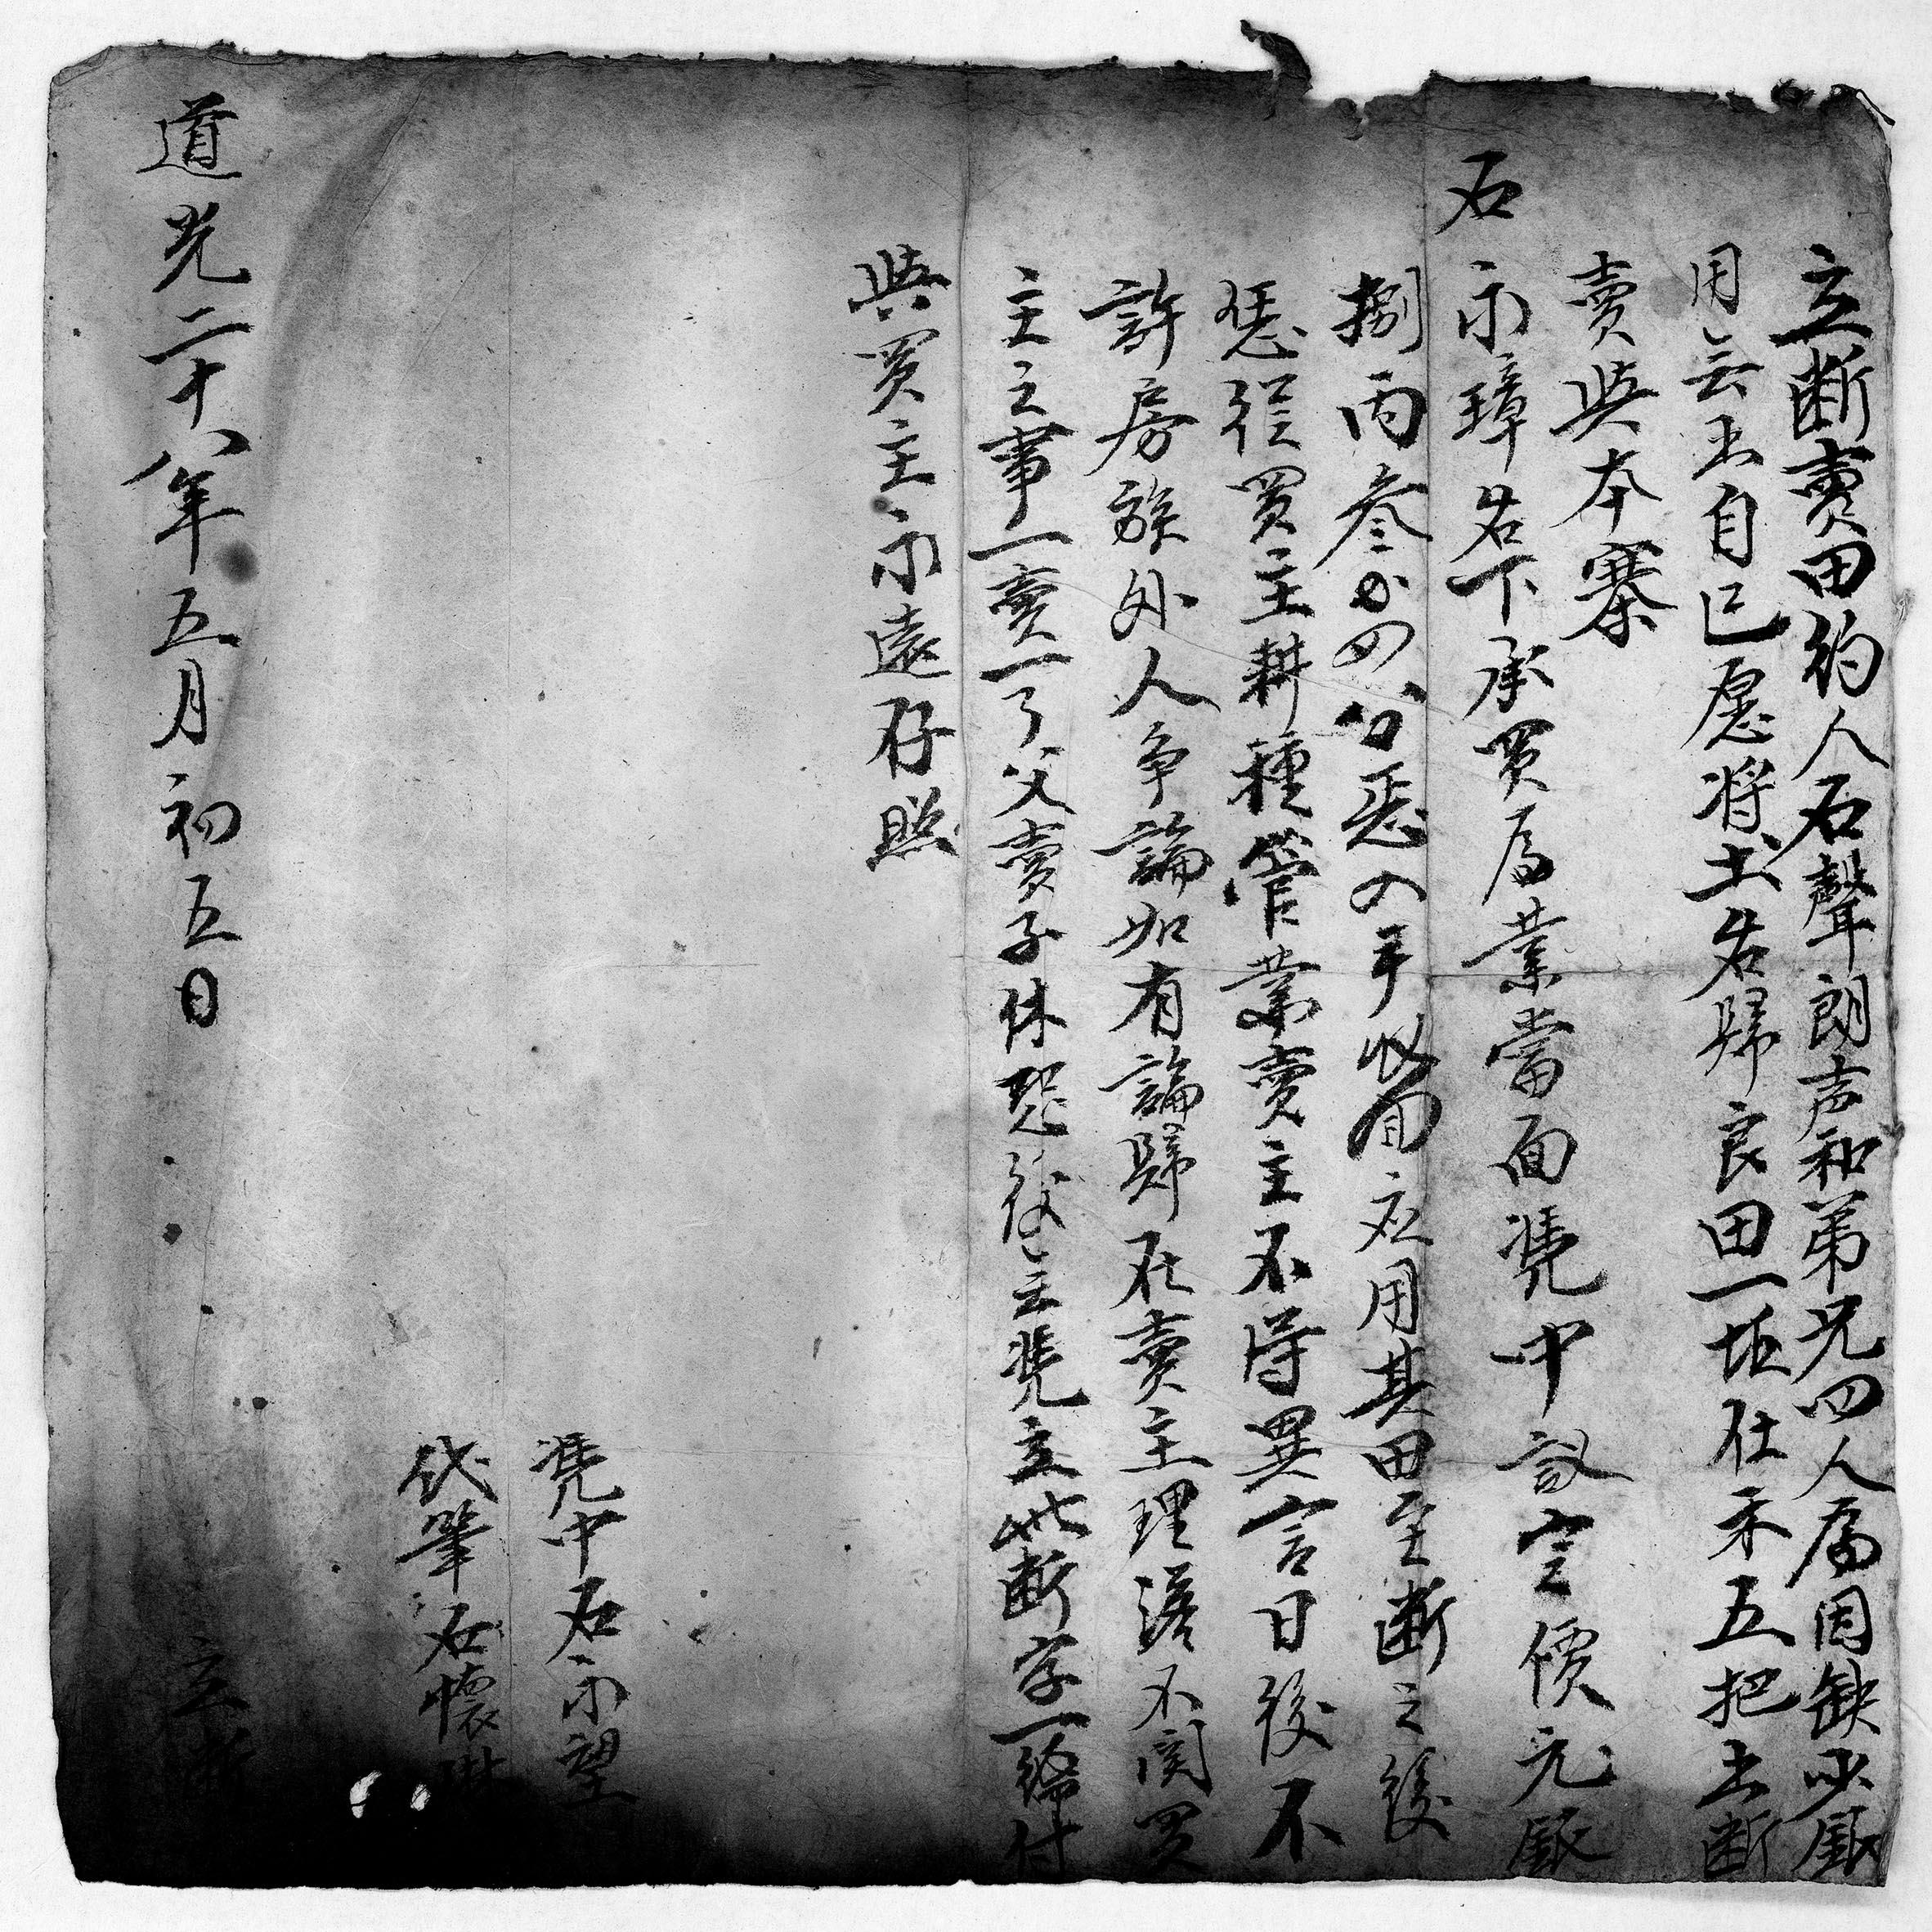 立断賣田約人石聲朗声和弟兄四人爲因缺少銀
用無出自己愿將土名歸良田一坵在禾五把出断
賣與本寨
石永璋名下承買爲業當面凴中議定價元銀
捌両叁分四八分悉入手收用应用其田至断之後
恁從買主耕種管業賣主不得異言日後不
許房族外人争論如有論歸在賣主理落不関買
主之事一賣一了父賣子休恐後无凴立此断字一紙付
與買主永遠存照
凴中石永望
代筆石懷琳
道光二十八年五月初五日 立断